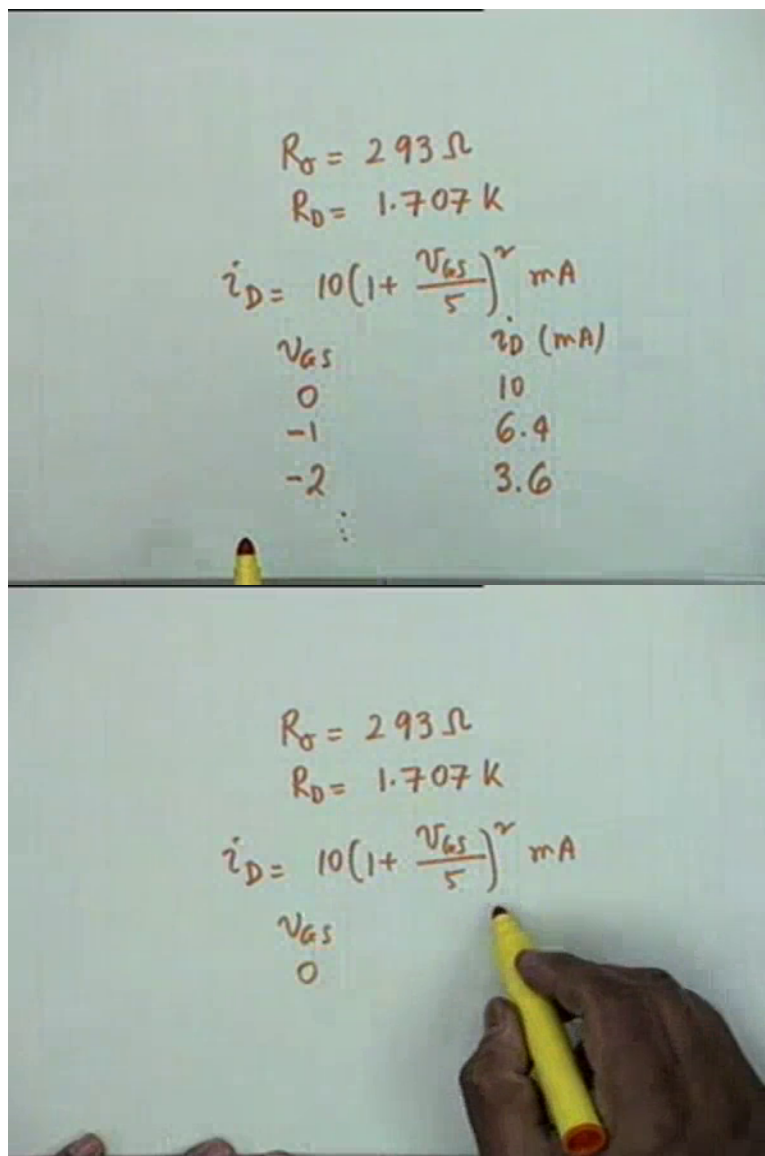 Rσ = 293 Ω
RD = 1.707 K
iD = 10(1 + vGS/5)² mA
vGS iD (mA)
0 10
-1 6.4
-2 3.6
⋮
Rσ = 293 Ω
RD = 1.707 K
iD = 10(1 + vGS/5)² mA
vGS
0